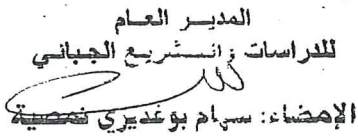 المدير العام
للدراسات والتشريع الجبائي
الإمضاء: سهام بوغديري نمصية